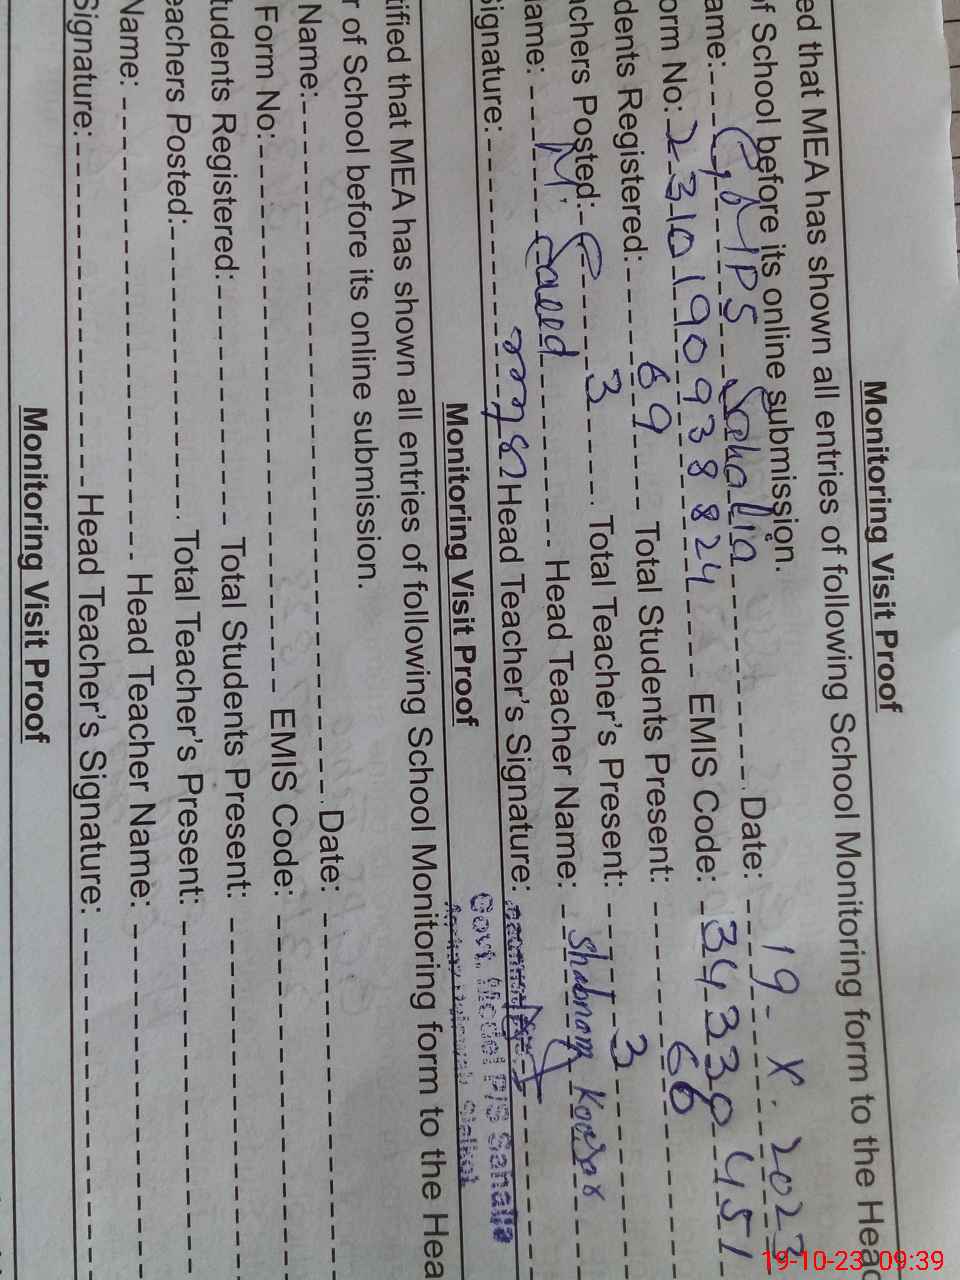 Monitoring Visit Proof
ed that MEA has shown all entries of following School Monitoring form to the Head
of School before its online submission.
ame: GMPS Sahalia Date: 19-X-2023
orm No: 2310190938824 EMIS Code: 34330451
dents Registered: 69 Total Students Present: 66
achers Posted: 3 Total Teacher's Present: 3
ame: M. Saeed Head Teacher Name: Shabnam Kousar
Signature: Head Teacher's Signature:
Govt. Model P/S Sahalia
Sialkot
Monitoring Visit Proof
tified that MEA has shown all entries of following School Monitoring form to the Hea
r of School before its online submission.
Name: Date:
Form No: EMIS Code:
tudents Registered: Total Students Present:
eachers Posted: Total Teacher's Present:
Name: Head Teacher Name:
Signature: Head Teacher's Signature:
Monitoring Visit Proof
19-10-23 09:39